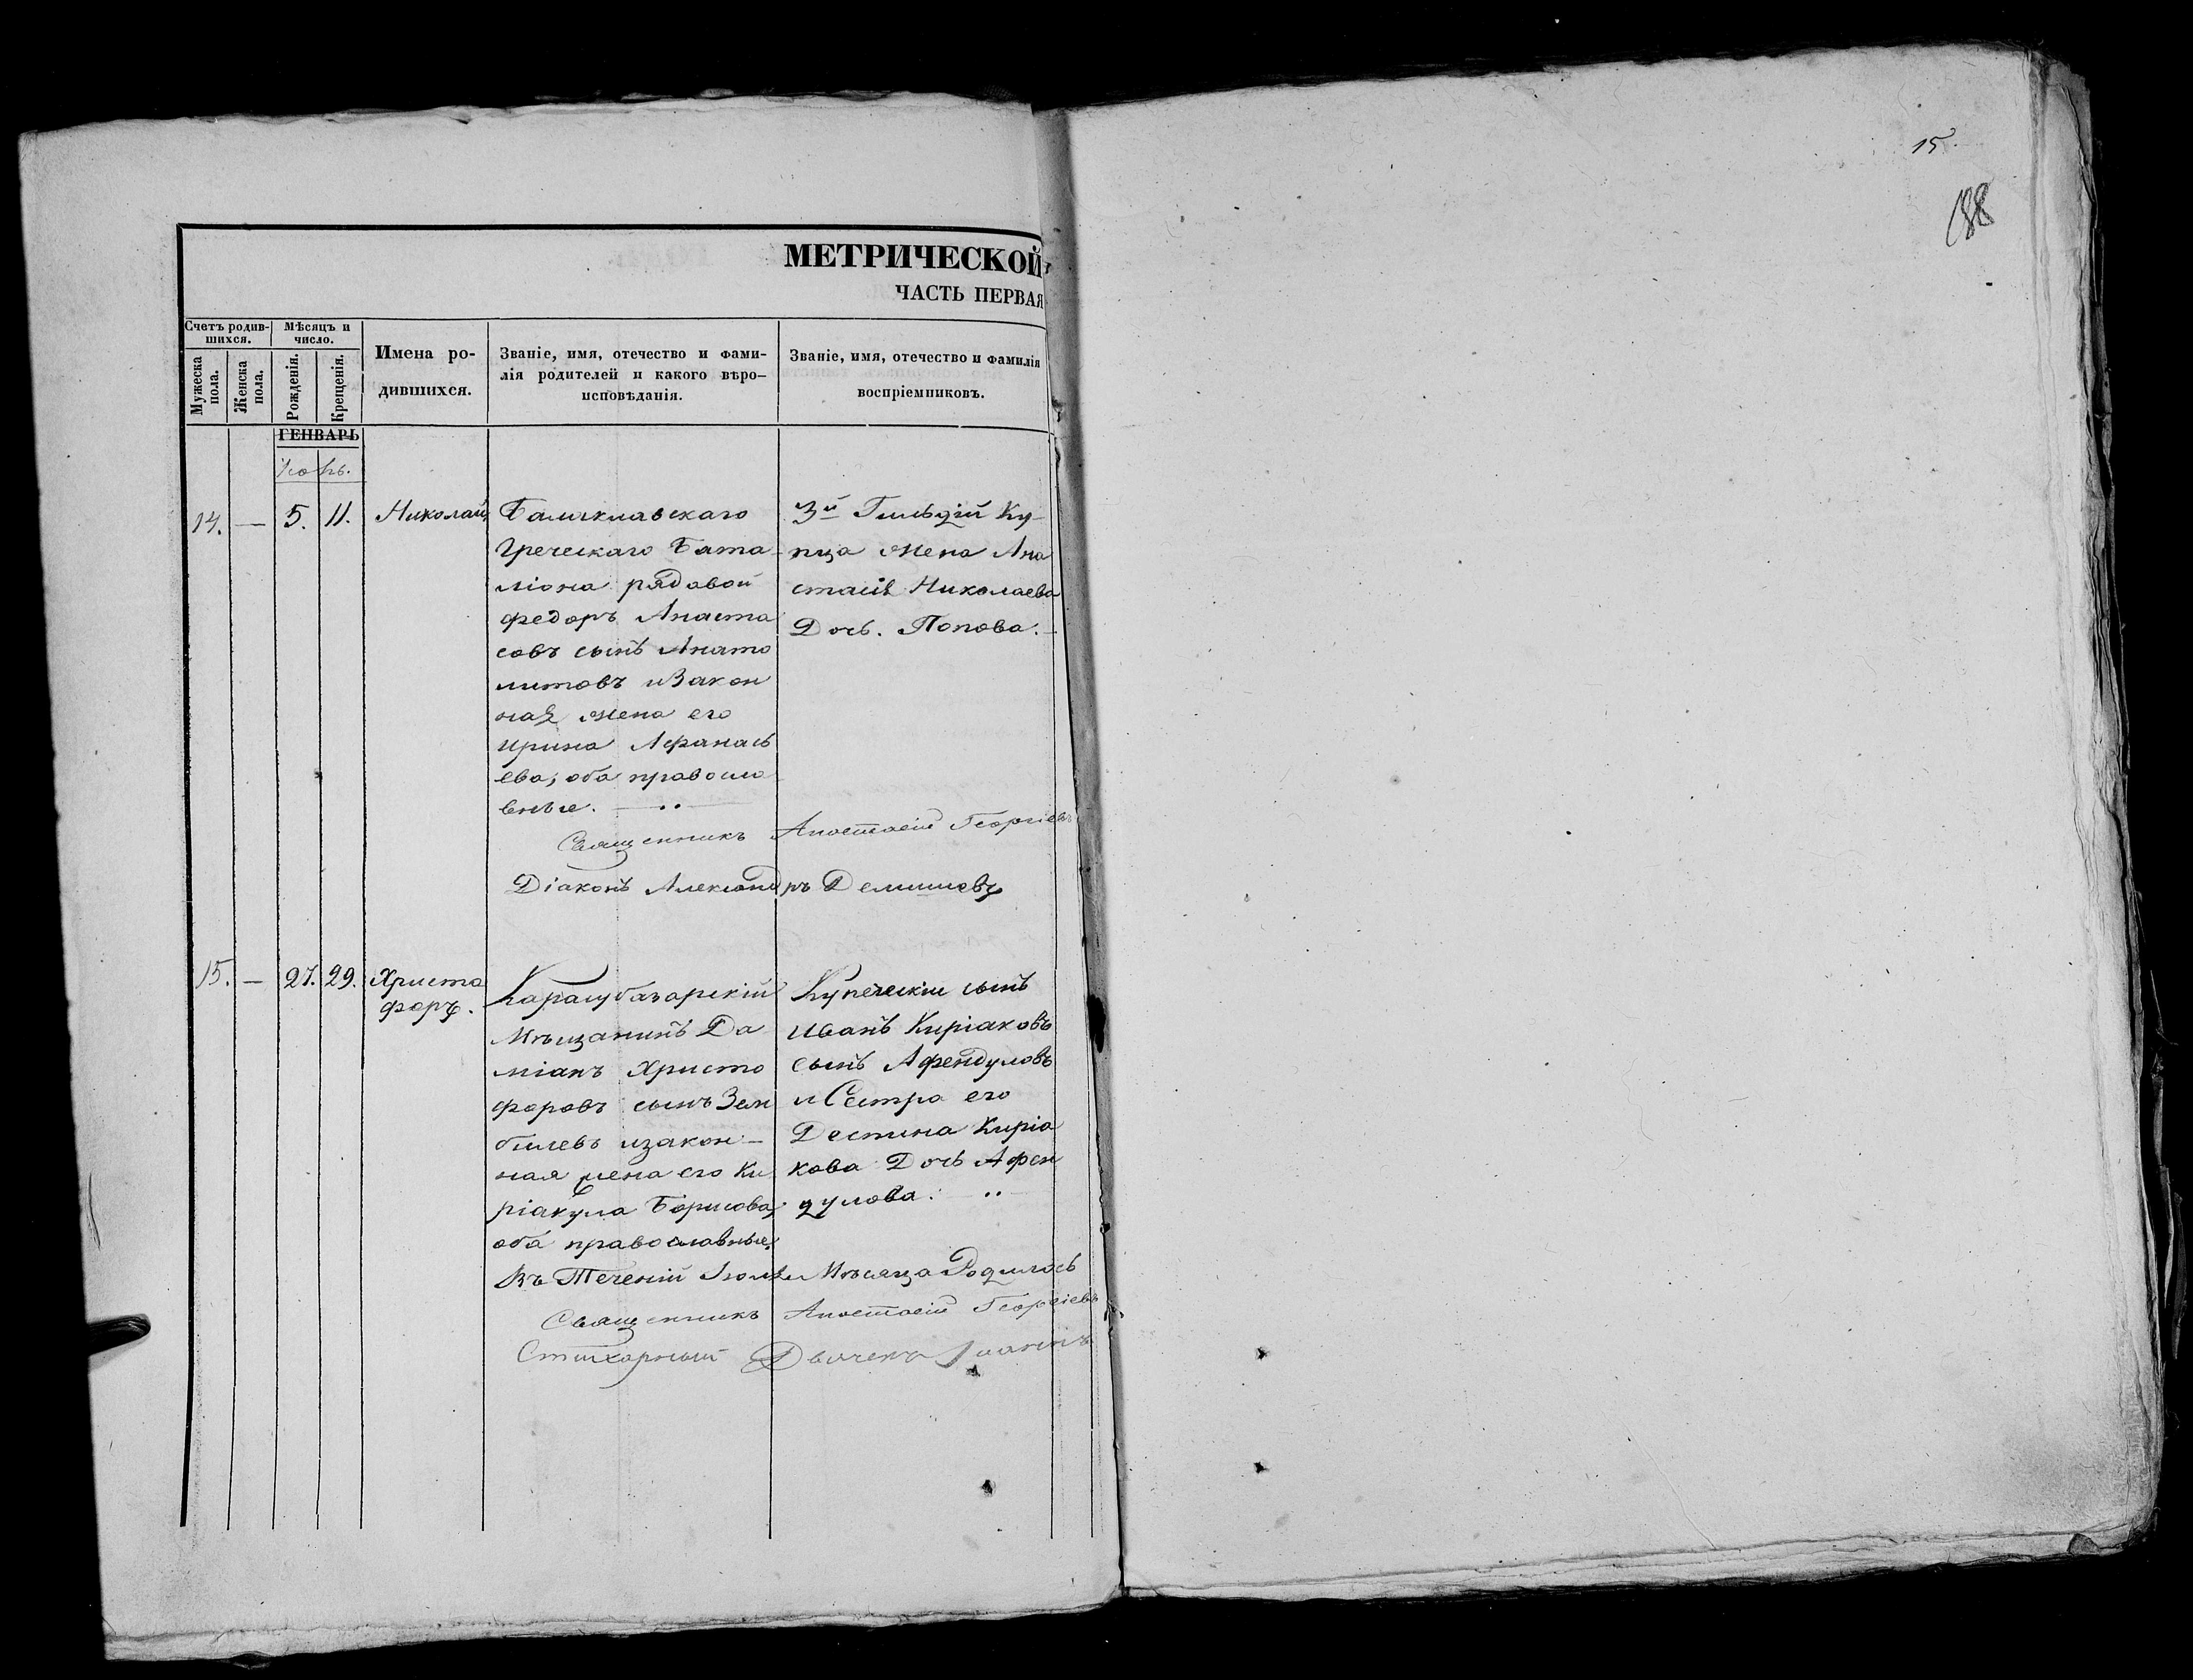 15.
188
МЕТРИЧЕСКОЙ
ЧАСТЬ ПЕРВАЯ
Счетъ родив-
шихся.
Мѣсяцъ и
число.
Мужеска
пола.
Женска
пола.
Рожденія.
Крещенія.
Имена ро-
дившихся.
Званіе, имя, отечество и фами-
лія родителей и какого вѣро-
исповѣданія.
Званіе, имя, отечество и фамилія
воспріемниковъ.
ГЕНВАРЬ
14. — 5. 11. Николай
Балаклавскаго
Греческаго Бата-
ліона рядавой
федоръ Анаста
совъ сынъ Анато
литовъ и Закон
ная жена его
ирина Афанась
ева, оба правосла
вные.
3й Гильдій Ку-
пца жена Ана
стасія Николаева
Дочь. Попова.
Священникъ Анастасій Георгіевъ
Діаконъ Александръ
15. — 27. 29. Христо
форъ.
Карасубазарскій
Мѣщанинъ Да
міанъ Христо
форовъ сынъ Зам
билевъ изакон-
ная жена его Ки
ріакула Борисова,
оба православные,
Купеческій сынъ
иванъ Киріаковъ
сынъ Афендуловъ
и Сестра его
Деспина Киріа
кова Дочь Афен
дулова.
Въ Теченій Мѣсяца Родилось
Священникъ Анастасій Георгіевъ
Стихарный Дьячекъ Іоаннъ